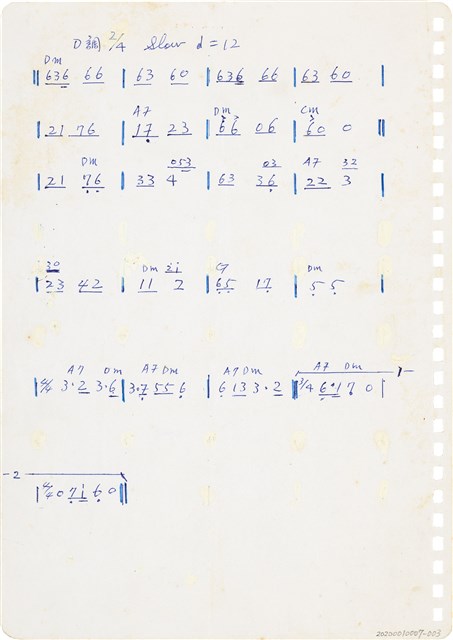 D調 2/4 Slow d=12
Dm
‖ 636 66 | 63 60 | 636 66 | 63 60
A7 Dm Cm
21 76 | 17 23 | 66 06 | 60 0 ‖
Dm 053 03 A7 32
| 21 76 | 33 4 | 63 36 | 22 3 |
30 Dm 2i G Dm
| 23 42 | 11 2 | 65 17 | 55 |
A7 Dm A7 Dm A7 Dm A7 Dm 1-
3·2 3·6 | 3·7 55 6 | 6 13 3·2 ‖ 3/4 6·1 7 0 |
-2
0 7 i 6 0 ‖
20200010007-003